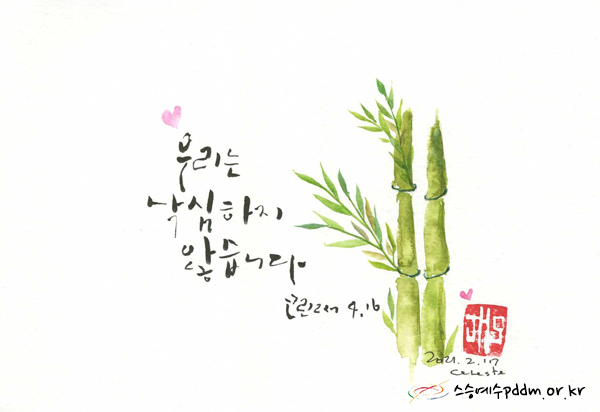 우리는
낙심하지
않습니다.
2코린 4,16
2021. 2. 17
Celeste
스승예수pddm.or.kr